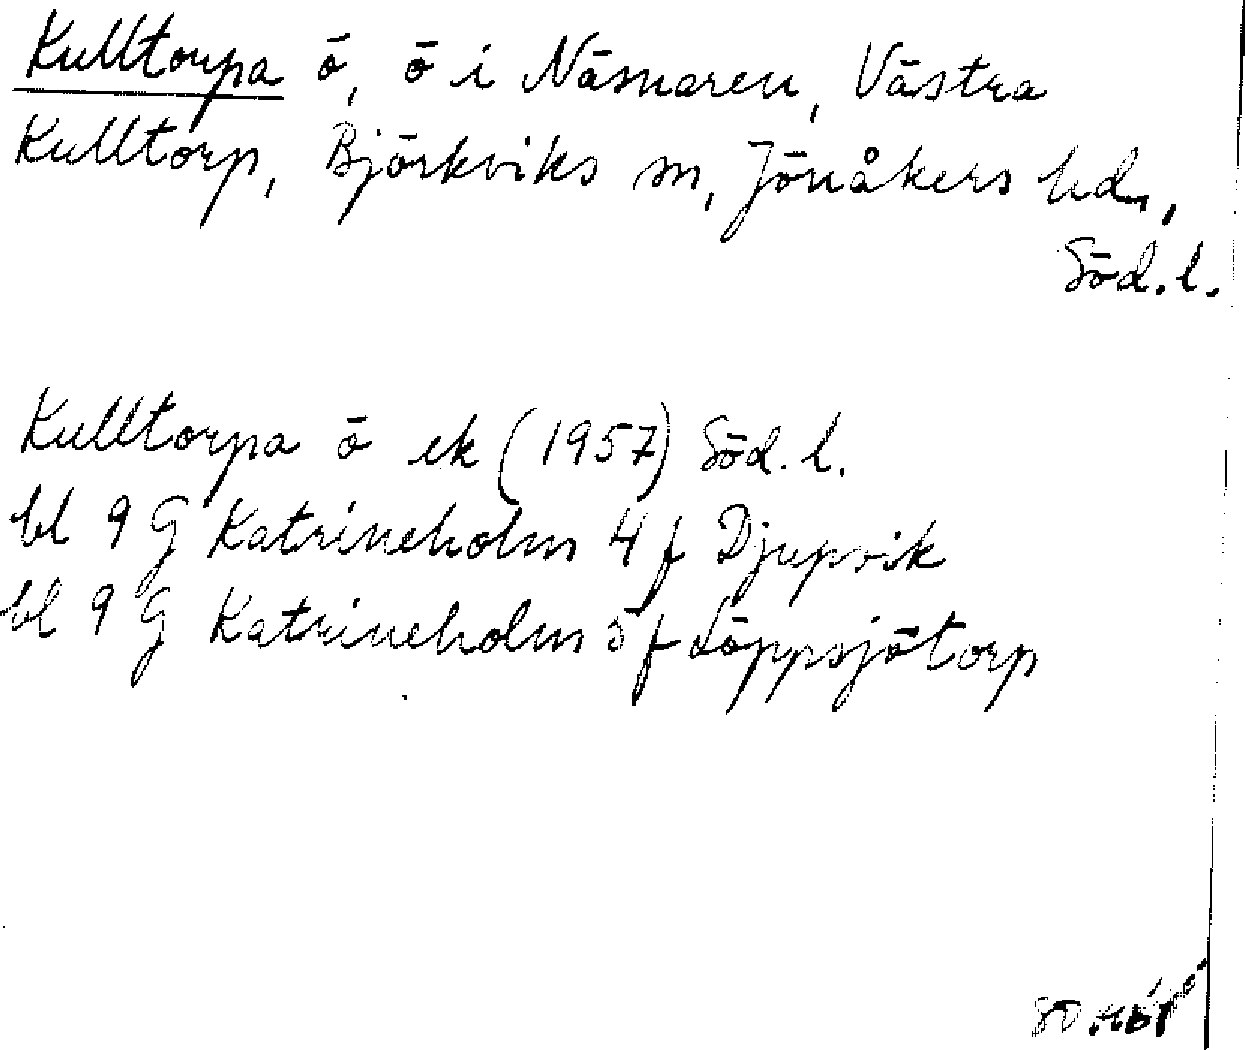 Kulltorpa ö, ö i Näsnaren, Västra
Kulltorp, Björkviks sn, Jönåkers hd,
Söd. l.
Kulltorpa ö ek (1957) Söd. l.
bl 9 G Katrineholm 4 f Djupvik
bl 9 G Katrineholm 5 f Löppsjötorp